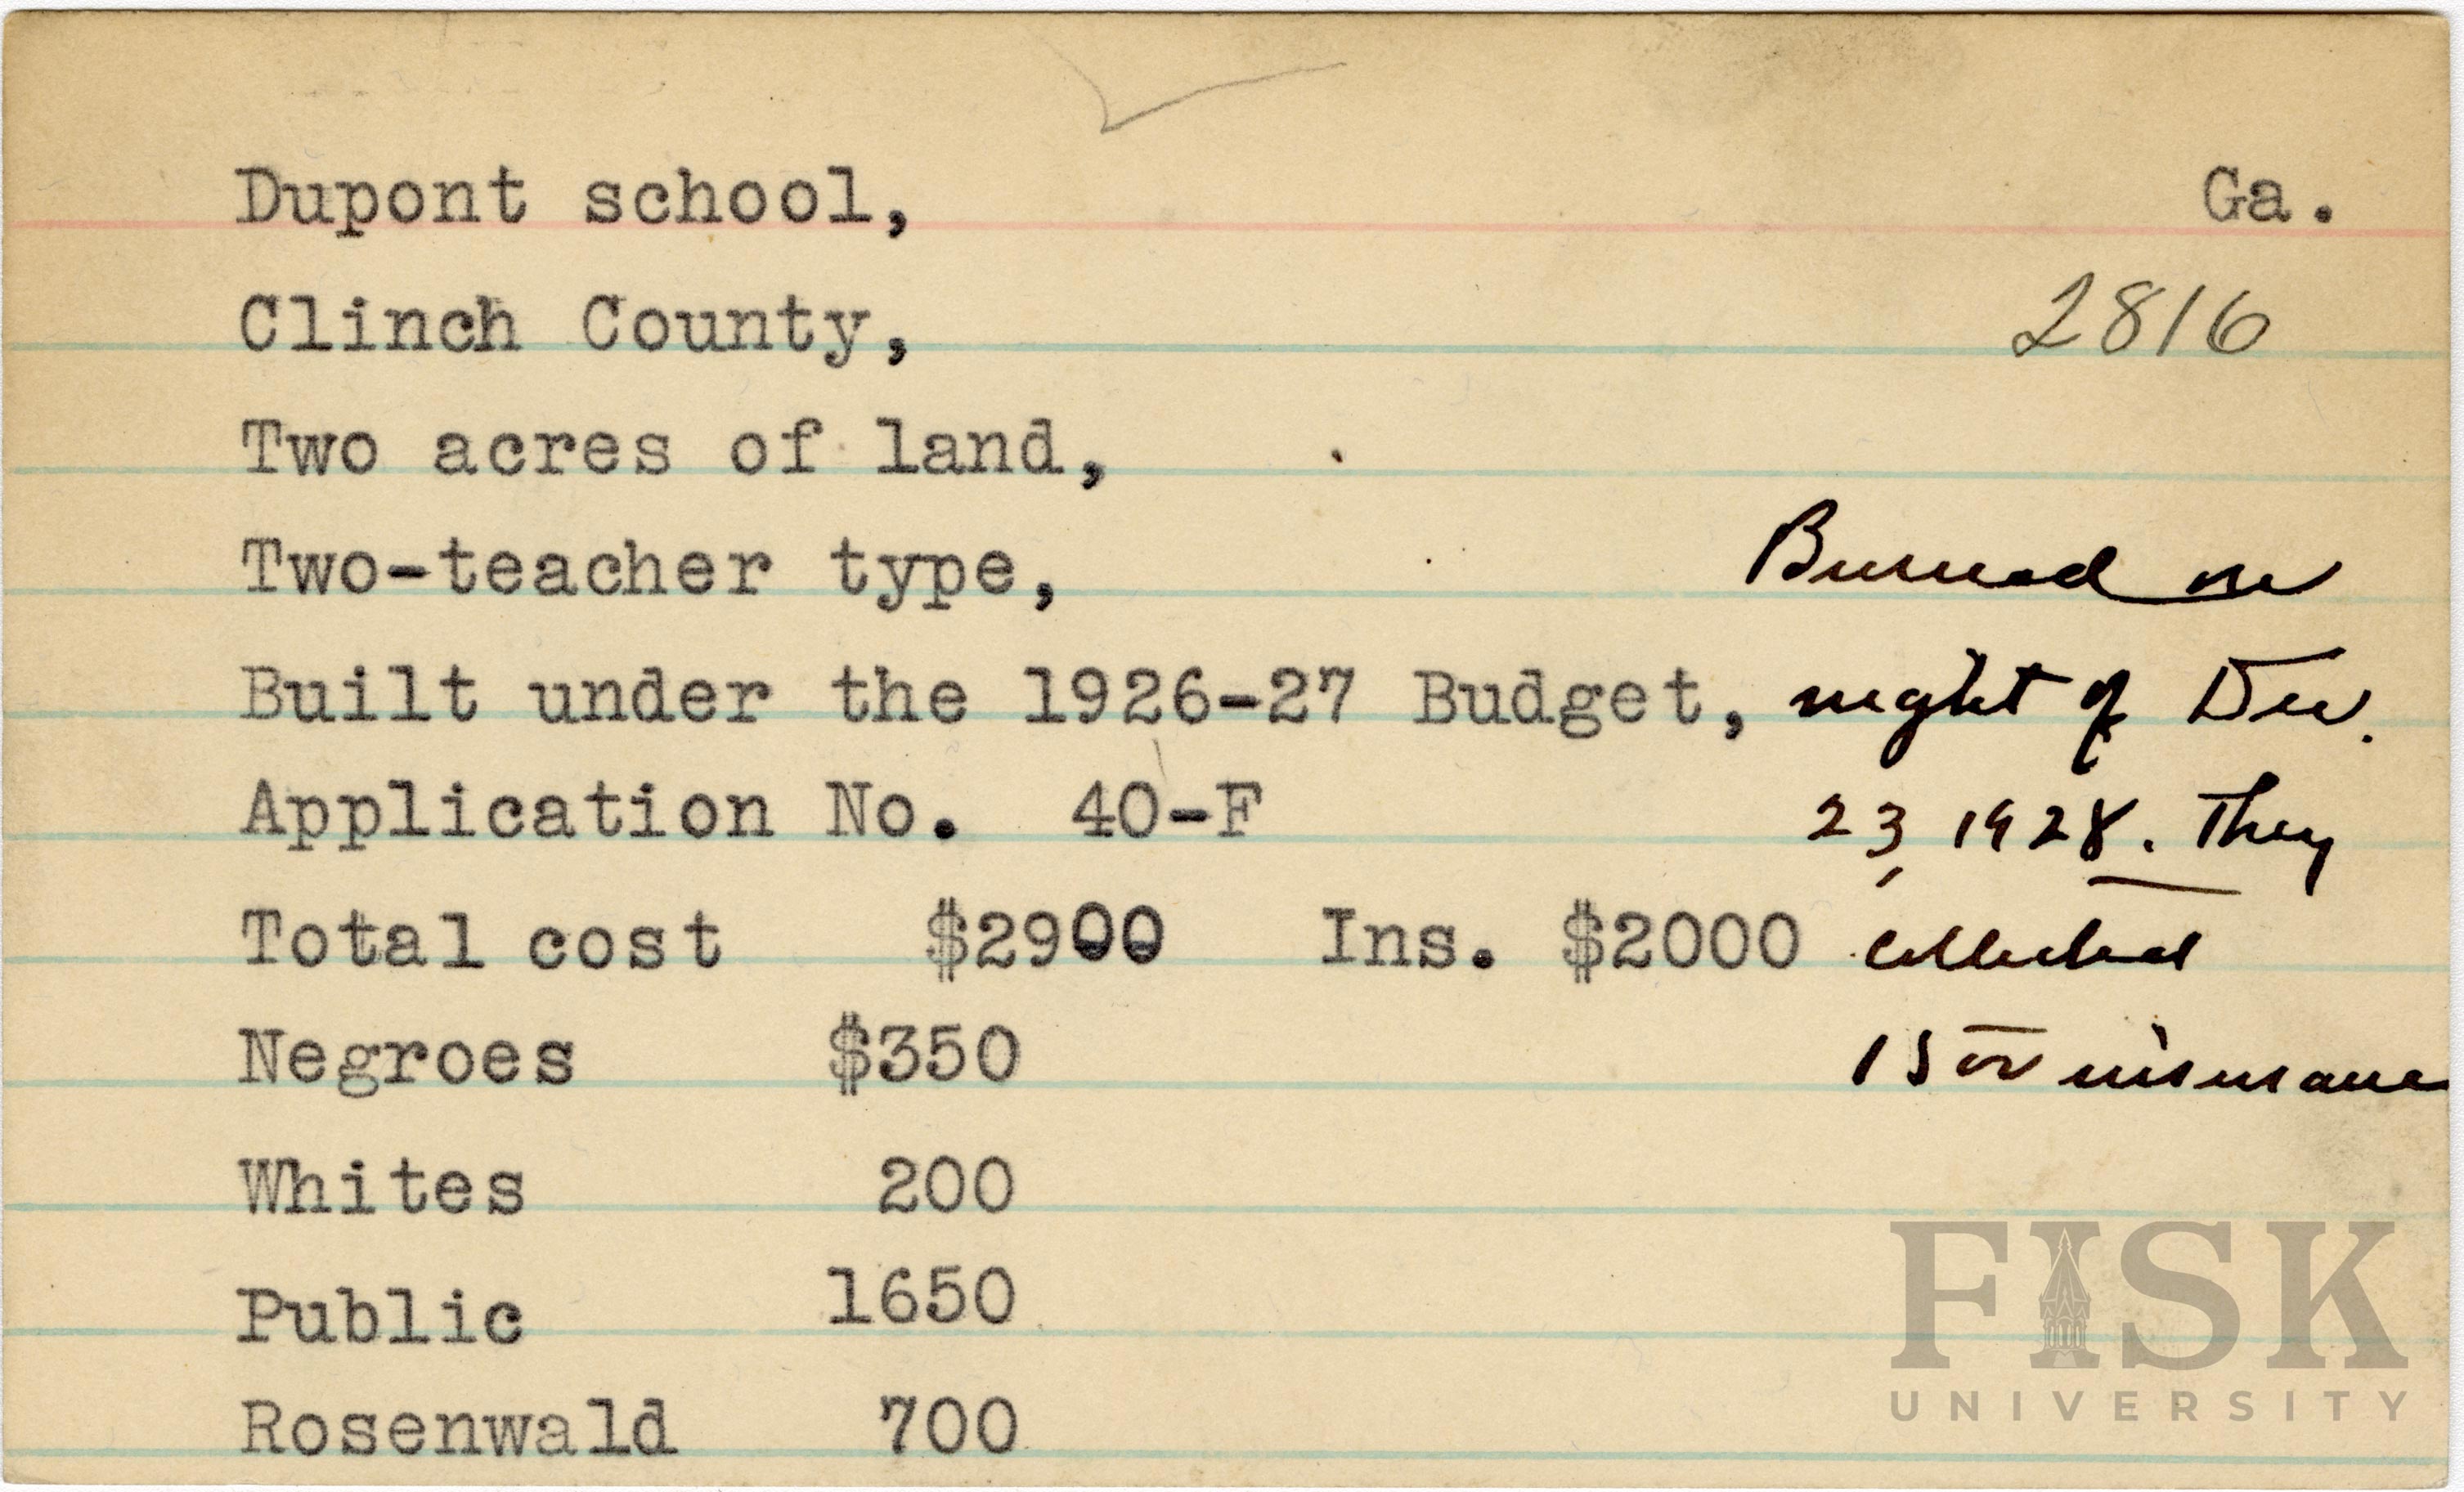 Dupont school, Ga.
Clinch County, 2816
Two acres of land,
Two-teacher type, Burned on
Built under the 1926-27 Budget, night of Dec.
Application No. 40-F 23, 1928. They
Total cost $2900 Ins. $2000 collected
Negroes $350 1500 insurance
Whites 200
Public 1650
Rosenwald 700
FISK
UNIVERSITY